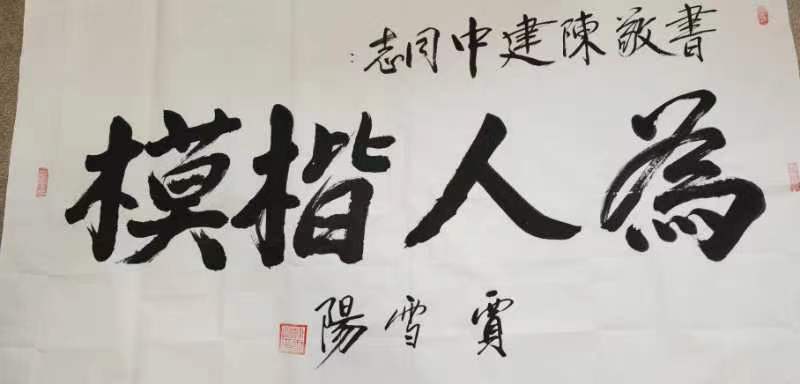 書敬陳建中同志:
為人楷模
賈雪陽